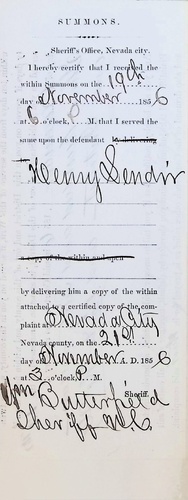 SUMMONS.
Sheriff's Office, Nevada city.
I hereby certify that I received the
within Summons on the 19th
day November 1856
at 6 o'clock, P M. that I served the
same upon the defendant by delivering
Henry
a copy of the within and upon
by delivering him a copy of the within
attached to a certified copy of the com-
plaint at Nevada City
Nevada county, on the 21st
day of November A. D. 1856
at 3 o'clock, P M.
Wm Butterfield Sheriff.
Sheriff N.C.